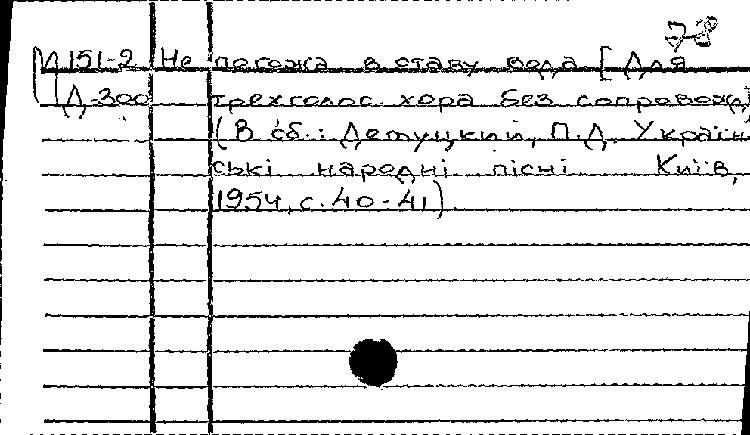 7-8
М 151-2 Не погожа в ставу вода [Для
Д-300 трехголос хора без сопровожд]
(В сб.: Демуцкий, П.Д. Україн
ські народні пісні Київ,
1954, с. 40-41).